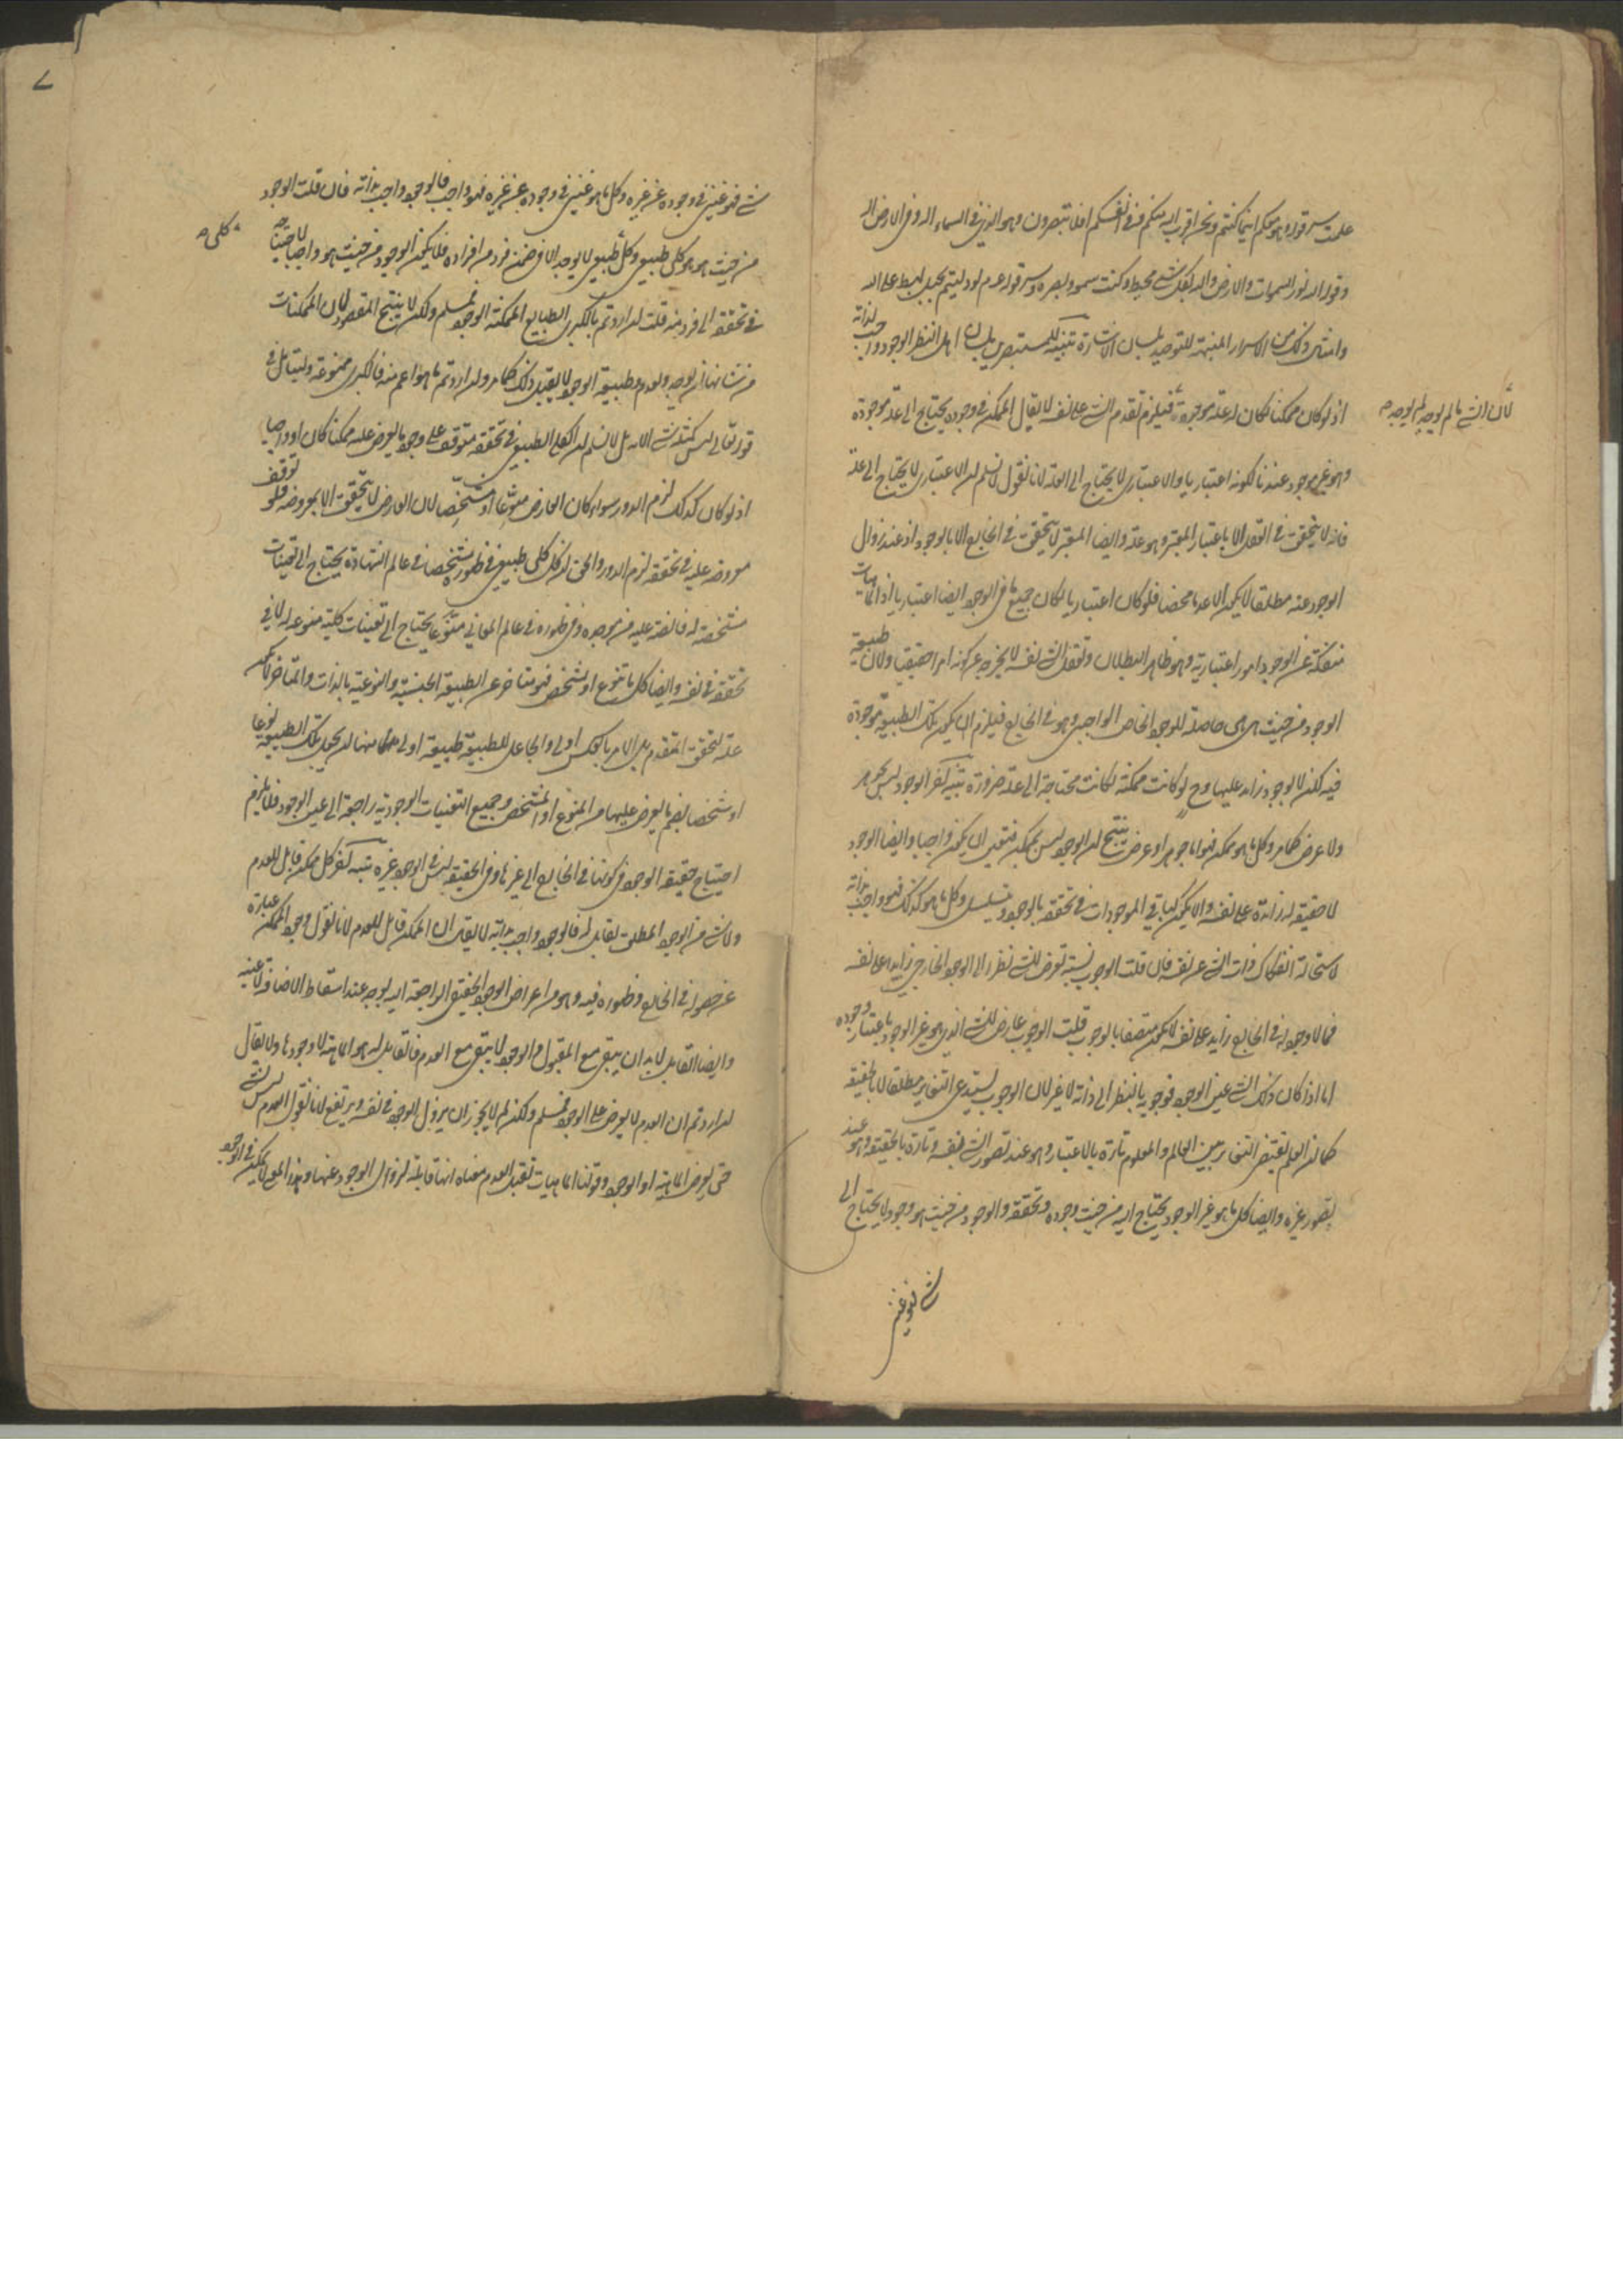 علمت سر قوله وهو معكم اينما كنتم ونحن اقرب اليه منكم وفي انفسكم افلا تبصرون وهو الذي في السماء اله وفي الارض اله
وقوله الله نور السموات والارض والله بكل شئ محيط وكنت سمعه وبصره وسر قوله عدم لو دليتم بحبل لهبط على الله
وامثال ذلك من الاسرار المنبهة للتوحيد بلسان الاشارة تنبيه للمستبصرين بلسان اهل النظر الوجود واجب لذاته
اذ لو كان ممكنا لكان له علة موجودة فيلزم تقدم الشئ على نفسه لا يقال الممكن في وجوده يحتاج الى علة موجودة
لان الشئ ما لم يوجد لم يوجد
وهو غير موجود عندنا لكونه اعتباريا والاعتباري لا يحتاج الى العلة لانا نقول لا نسلم ان الاعتباري لا يحتاج الى علة
فانه لا يتحقق في العقل الا باعتبار المعتبر فهو علة وايضا المعتبر لا يتحقق في الخارج الا بالوجود اذ عند زوال
الوجود عنه مطلقا لا يكون الا عدما محضا فلو كان اعتباريا لكان جميع ما في الوجود ايضا اعتباريا اذ الماهيات
منفكة عن الوجود امور اعتبارية وهو ظاهر البطلان وتعقل الشئ نفسه لا يخرجه عن كونه امرا حقيقيا ولان طبيعة
الوجود من حيث هي هي حاصلة للوجود الخاص الواجبي وهو في الخارج فيلزم ان يكون تلك الطبيعة موجودة
فيه لكن لا بوجود زايد عليها وح لو كانت ممكنة لكانت محتاجة الى علة ضرورة تنبيه آخر الوجود ليس بجوهر
ولا عرض كما مر وكل ما هو ممكن فهو اما جوهر او عرض ينتج ان الوجود ليس بممكن فتعين ان يكون واجبا وايضا الوجود
لا حقيقة له زائدة على نفسه والا يكون كباقي الموجودات في تحققه بالوجود ويتسلسل وكل ما هو كذلك فهو واجب بذاته
لاستحالة انفكاك ذات الشئ عن نفسه فان قلت الوجوب نسبة تعرض للشئ نظرا الى الوجود الخارجي زايد على نفسه
فما لا وجود له في الخارج زايد على نفسه لا يكون متصفا بالوجوب قلت الوجوب عارض للشئ الذي هو غير الوجود باعتبار وجوده
اما اذا كان ذلك الشئ عين الوجود فوجوبه بالنظر الى ذاته لا غير لان الوجوب يستدعي التغاير مطلقا لا بالحقيقة
كما ان العلم يقتضي التغاير بين العالم والمعلوم تارة بالاعتبار وهو عند تصور الشئ نفسه وتارة بالحقيقة وهو عند
تصور غيره وايضا كل ما هو غير الوجود يحتاج اليه من حيث وجوده وتحققه والوجود من حيث هو وجود لا يحتاج الى
شئ فهو غني
شئ فهو غني في وجوده عن غيره وكل ما هو غني في وجوده عن غيره فهو واجب فالوجود واجب بذاته فان قلت الوجود
من حيث هو هو كلي طبيعي وكل طبيعي لا يوجد الا في ضمن فرد من افراده فلا يكون الوجود من حيث هو واجبا لاحتياجه
كلي
في تحققه الى فرد منه قلت ان اردتم بالكبرى الطبايع الممكنة الوجود فمسلم ولكن لا ينتج المقصود لان الممكنات
من شانها ان يوجد ويعدم وطبيعة الوجود لا يقبل ذلك كما مر وان اردتم ما هو اعم منه فالكبرى ممنوعة وليتامل في
قوله تعالى ليس كمثله شئ الاية بل لا نسلم ان الكلي الطبيعي في تحققه متوقف على وجود ما يعرض عليه ممكنا كان او واجبا
اذ لو كان كذلك لزم الدور سواء كان العارض منوعا او مشخصا لان العارض لا يتحقق الا بمعروضه فلو توقف
معروضه عليه في تحققه لزم الدور والحق ان كل كلي طبيعي في ظهوره مشخصا في عالم الشهادة يحتاج الى تعينات
مشخصة له فائضة عليه من موجده وفي ظهوره في عالم المعاني منوعا يحتاج الى تعينات كلية منوعة له لا في
تحققه في نفسه وايضا كل ما تنوع او تشخص فهو متاخر عن الطبيعة الجنسية والنوعية بالذات والمتاخر لا يكون
علة لتحقق المتقدم بل الامر بالعكس اولى والجاعل للطبيعة طبيعة اولى منها ان يجعل تلك الطبيعة نوعا
او شخصا بضم ما يعرض عليها من المنوع او المشخص وجميع التعينات الوجودية راجعة الى عين الوجود فلا يلزم
احتياج حقيقة الوجود في كونها في الخارج الى غيرها وفي الحقيقة ليس في الوجود غيره تنبيه آخر كل ممكن قابل للعدم
ولا شئ من الوجود المطلق بقابل له فالوجود واجب بذاته لا يقال ان الممكن قابل للعدم لانا نقول وجود الممكن عبارة
عن حصوله في الخارج وظهوره فيه وهو من اعراض الوجود الحقيقي الراجعة اليه بوجه عند اسقاط الاضافة لا عينه
وايضا القابل لا بد ان يبقى مع المقبول والوجود لا يبقى مع العدم فالقابل له هو الماهية لا وجودها ولا يقال
ان اردتم ان العدم لا يعرض على الوجود فمسلم ولكن لم لا يجوز ان يزول الوجود في نفسه ويرتفع لانا نقول العدم ليس بشئ
حتى يعرض الماهية او الوجود وقولنا الماهيات تقبل العدم معناه انها قابلة لزوال الوجود عنها وهذا المعنى لا يمكن في الوجود